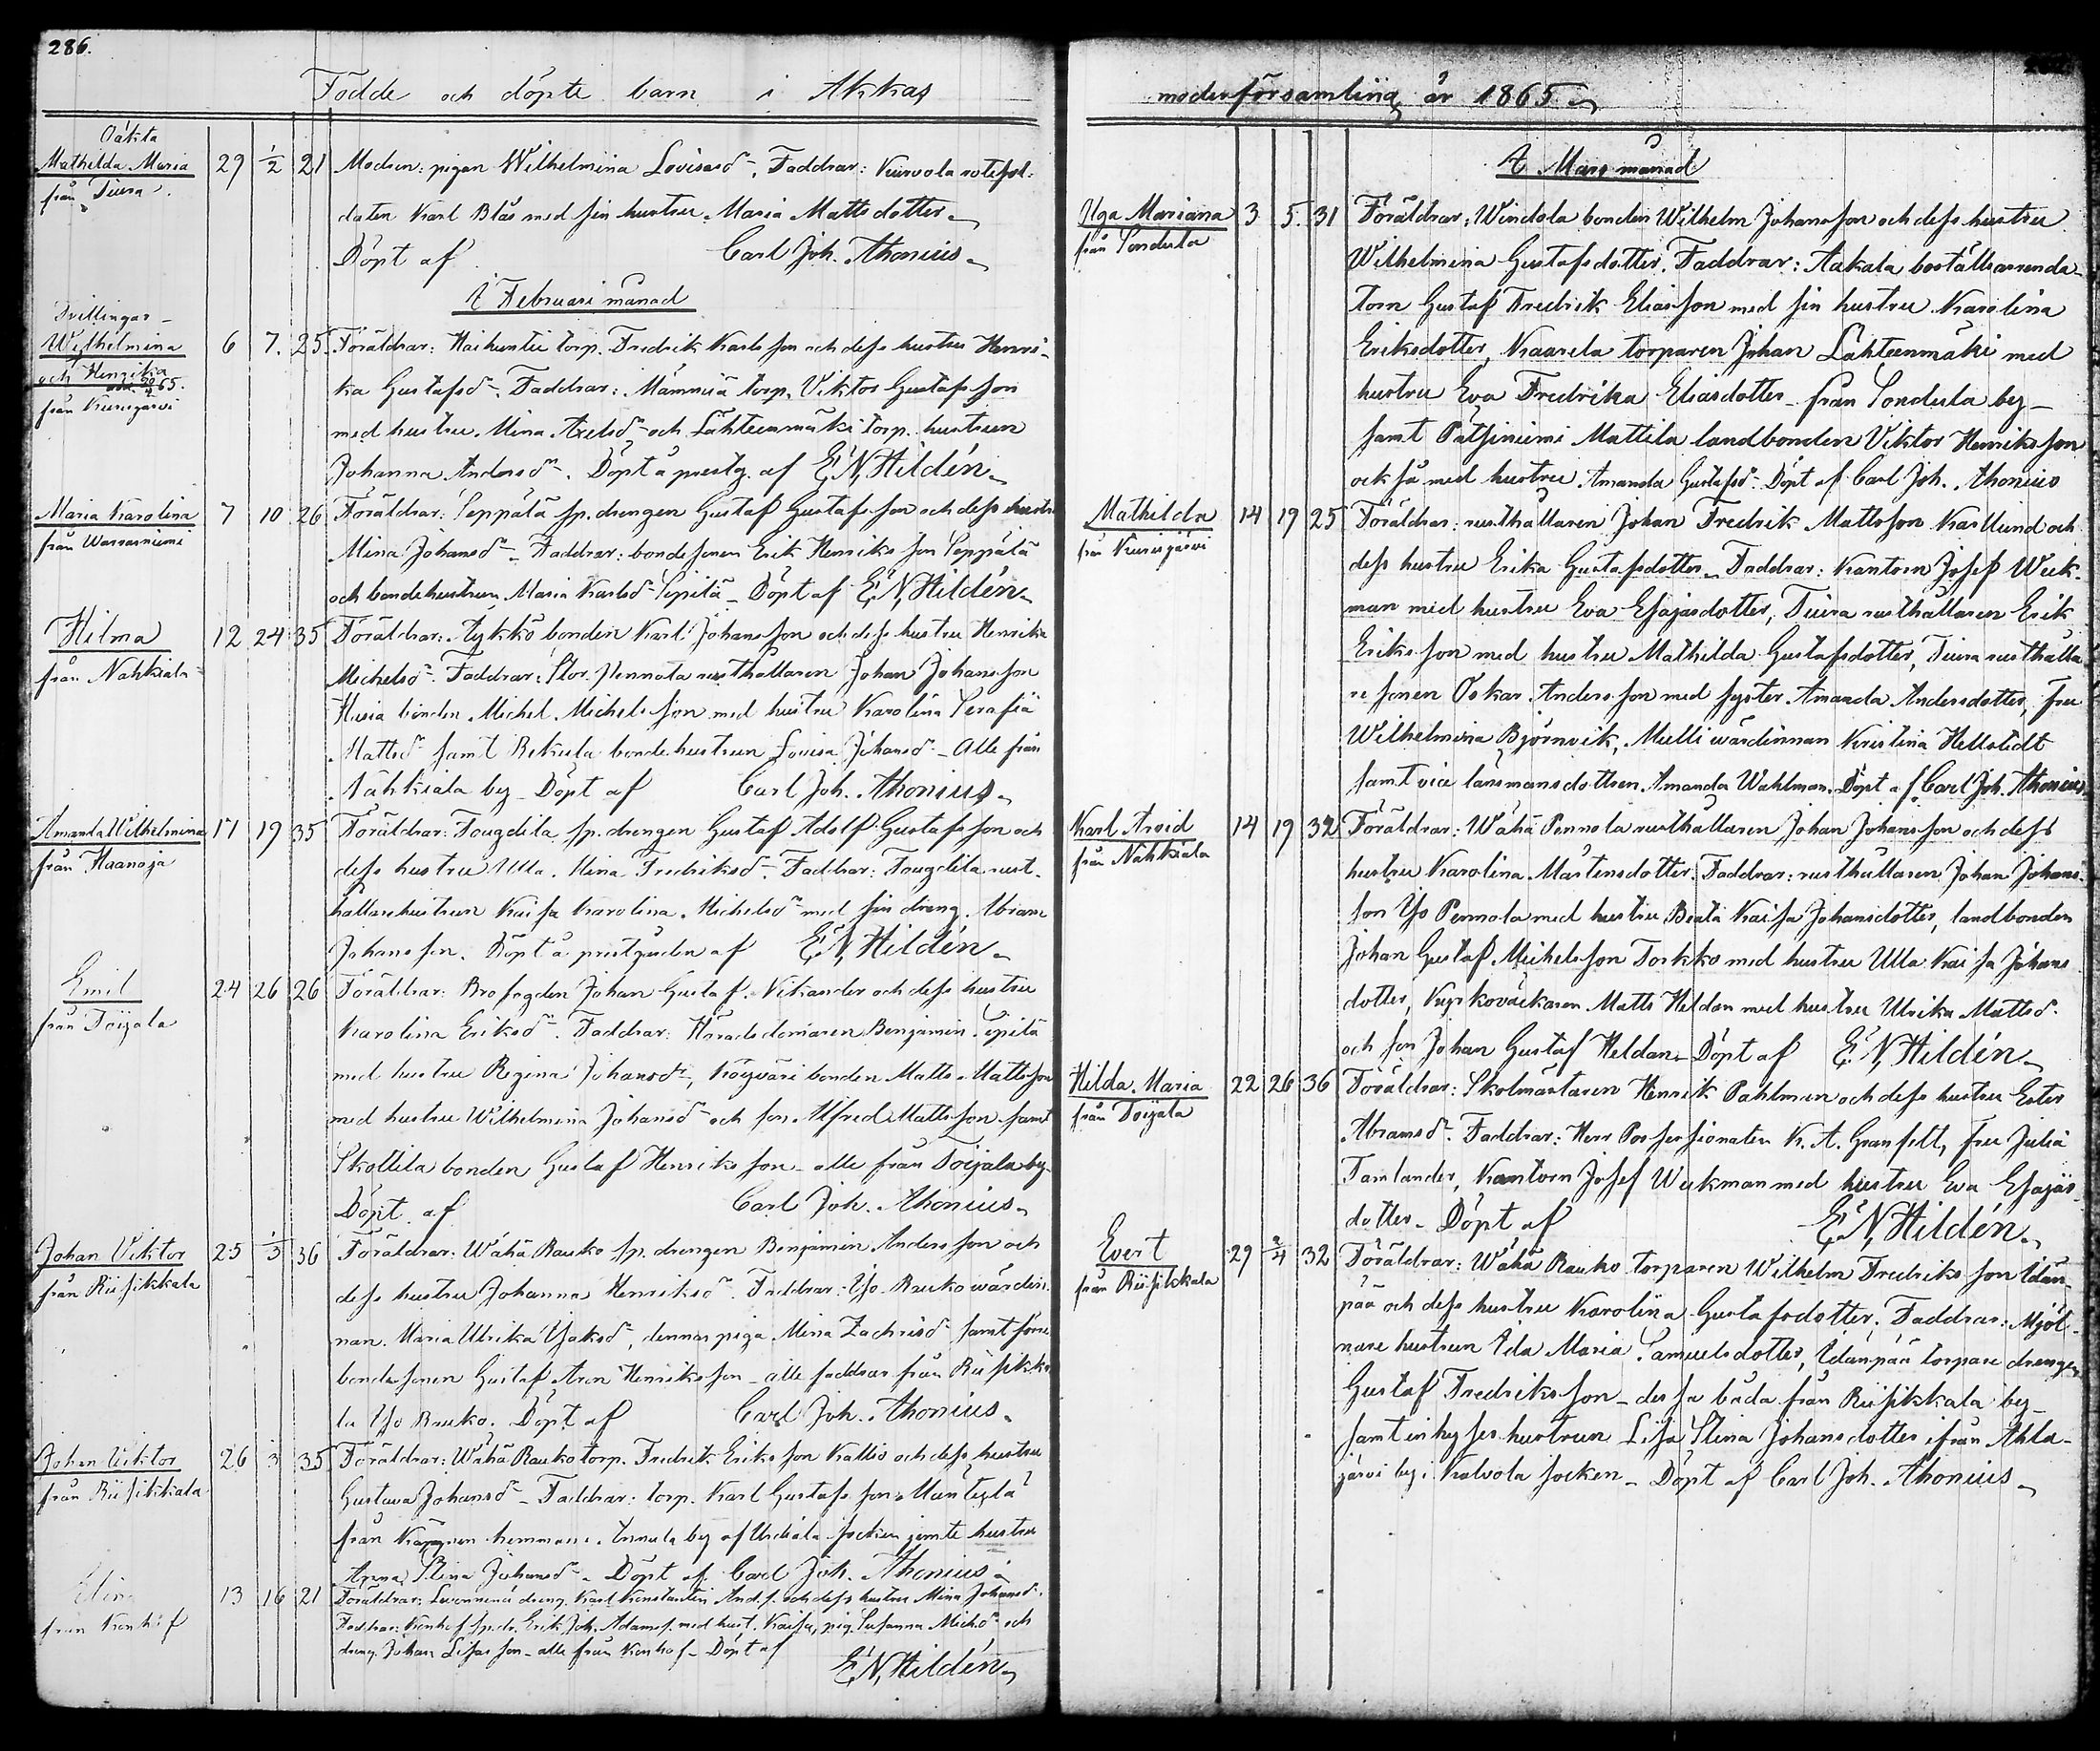 286.
Födde och döpte barn i Akkas
Oäkta
Mathilda Maria 29 1/2 21 Modren: pigan Wilhelmina Lovisasdr. Faddrar: Kurvola rotesol-
från Tiura. daten Karl Blås med sin hustru Maria Mattsdotter
Döpt af Carl Joh. Ahonius
I Februari månad
Tvillingar
Wilhelmina 6 7. 25 Föräldrar: Haihuntii torp. Fredrik Karlsson och dess hustru Henri-
och Henrika
65.
från Kurisjärvi
ka Gustafsdr. Faddrar: Mammiä torp. Viktor Gustafsson
med hustru Mina Axelsdr och Lähteenmäki torp. hustrun
Johanna Andersdr. Döpt å prestg. af E. N. Hildén
Maria Karolina 7 10 26 Föräldrar: Seppälä sp. drengen Gustaf Gustafsson och dess hustru
från Warrasniemi Mina Johansdr. Faddrar: bondesonen Erik Henriksson Seppälä
och bondehustrun Maria Karlsdr Sipilä Döpt af E. N. Hildén
Hilma 12 24 35 Föräldrar: Tykkö bonden Karl Johansson och dess hustru Henrika
från Nahkiala Michelsdr. Faddrar: Stor Pennola rusthållaren Johan Johansson
bonden Michel Michelsson med hustru Karolina Serafia
Mattsdr samt Rekula bondehustrun Lovisa Johansdr. Alle från
Nahkiala by Döpt af Carl Joh. Ahonius
Amanda Wilhelmina 17 19 35 Föräldrar: Tougdila sp. drengen Gustaf Adolf Gustafsson och
från Haanoja dess hustru Ulla Mina Fredriksdr. Faddrar: Tougdila rust-
hållarehustrun Kaisa Karolina Michelsdr med sin dreng Abram
Johansson. Döpt å prestgården af E. N. Hildén
Emil 24 26 26 Föräldrar: Brofogden Johan Gustaf Vikander och dess hustru
från Toijala Karolina Eriksdr. Faddrar: Häradsdomaren Benjamin Sipilä
med hustru Regina Johansdr, bonden Matts Mattsson
med hustru Wilhelmina Johansdr och son Alfred Mattsson samt
Skottila bonden Gustaf Henriksson alle från Toijala by
Döpt af Carl Joh. Ahonius
Johan Viktor 25 1/3 36 Föräldrar: Wähä Rauko sp. drengen Benjamin Andersson och
från Riisikkala dess hustru Johanna Henriksdr. Faddrar: Yso Rauko wärdin-
nan Maria Ulrika Isaksdr, dennes piga Mina Zachrisdr samt
bondesonen Gustaf Aron Henriksson alle faddrar från Riisikka-
la Yso Rauko. Döpt af Carl Joh. Ahonius.
Johan Viktor 26 35 Föräldrar: Wähä Rauko torp. Fredrik Eriksson Kallio och dess hustru
från Riisikkala Gustava Johansdr. Faddrar: torp. Karl Gustafsson Mäntylä
från hemman i Annula by af Urdiala socken jemte hustru
Anna Stina Johansdr. Döpt af Carl Joh. Ahonius
13 16 21 Föräldrar: dreng Karl Konstantin And.s. och dess hustru Mina Johansdr.
från Konhof Faddrar: Konhof sp. dr. Erik Joh. Adams. med hust. Kaisa, pig. Susanna Michdr och
dreng. Johan Lisasson alle från Konhof Döpt af
E. N. Hildén
moderförsamling år 1865
I Mars månad
Olga Mariana 3 5. 31 Föräldrar: Windola bonden Wilhelm Johansson och dess hustru
från Sondula Wilhelmina Gustafsdotter. Faddrar: Aakala boställsarrenda-
torn Gustaf Fredrik Eliasson med sin hustru Karolina
Eriksdotter, Kaarela torparen Johan Lähteenmäki med
hustru Eva Fredrika Eliasdotter från Sondula by
samt Patsiniemi Mattila landbonden Viktor Henriksson
också med hustru Amanda Gustafsdr. Döpt af Carl Joh. Ahonius
Mathilda 14 19 25 Föräldrar: rusthållaren Johan Fredrik Mattsson Karllund och
från Kurisjärvi dess hustru Erika Gustafsdotter. Faddrar: Kantorn Josef Weck-
man med hustru Eva Esajasdotter, Tiura rusthållaren Erik
Eriksson med hustru Mathilda Gustafsdotter, Tiura rusthålla-
resonen Oskar Andersson med syster Amanda Andersdotter, fru
Wilhelmina Björnvik, Mulli wärdinnan Kristina Hellstedt
samt vice länsmansdottern Amanda Wahlman. Döpt af Carl Joh. Ahonius
Karl Arvid 14 19 32 Föräldrar: Wähä Pennola rusthållaren Johan Johansson och dess
från Nahkiala hustru Karolina Mårtensdotter. Faddrar: rusthållaren Johan Johans-
son Yso Pennola med hustru Beata Kaisa Johansdotter, landbonden
Johan Gustaf Michelsson Torkko med hustru Ulla Kaisa Johans-
dotter, Kyrkoväktaren Matts Heldan med hustru Ulrika Mattsdr.
och son Johan Gustaf Heldan Döpt af E. N. Hildén
Hilda Maria 22 26 36 Föräldrar: Skolmästaren Henrik Pahlman och dess hustru Ester
från Toijala Abramsdr. Faddrar: Herr Possessionaten K. A. Granfelt, fru Julia
Tamlander, Kantorn Josef Weckman med hustru Eva Esajas-
dotter. Döpt af E. N. Hildén
Evert 29 2/4 32 Föräldrar: Wähä Rauko torparen Wilhelm Fredriksson Idän-
från Riisikkala pää och dess hustru Karolina Gustafsdotter. Faddrar: Mjöl-
narehustrun Ida Maria Samuelsdotter, Idänpää torpare drengen
Gustaf Fredriksson dessa båda från Riisikkala by
samt inhyseshustrun Lisa Stina Johansdotter ifrån Ahla-
järvi by i Kalvola socken. Döpt af Carl Joh. Ahonius